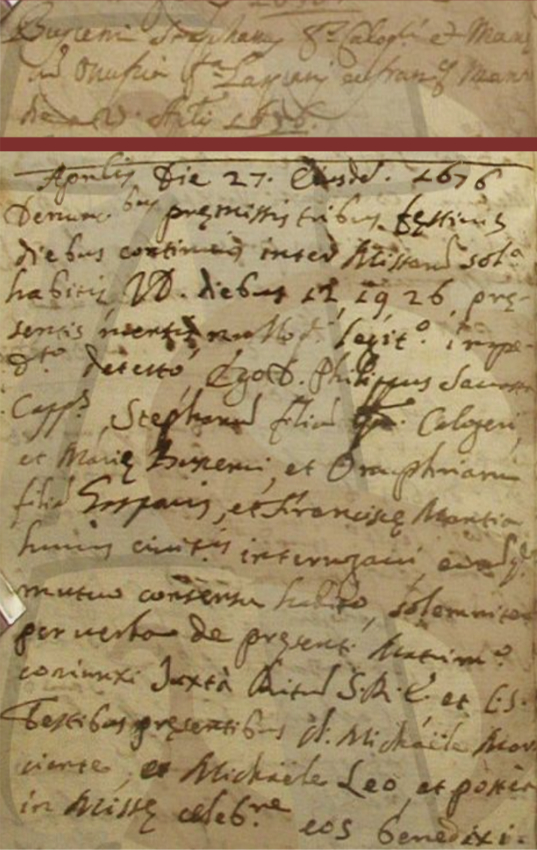 Buscemi Stephanus q.m Calogeri et Mari
cu Onufria f.a Gaspani et Franc.ę Man
die 27 Aplis 1676.
Aprilis Die 27. Eiusdē. 1676
Denunc.bus pręmissis tribus festivis
diebus continuis inter Missarū sol.a
habitis VD. diebus 12 19 26 prę-
sentis mensis nulloq́ legit.o impe-
d.to detecto, Ego D. Philippus
Capp.s Stephanū filiū q.m Calogeri,
et Marię Buscemi, et Onuphriam
filiā Gasparis, et Franciscę
huius civitis interrogavi eorūq̃
mutuo consensu habito, solemniter
per verba de pręsenti Matrim.o
coniunxi Juxta Ritū S.R.E. et C.S.
Testibus pręsentibus Cl. Michaele
et Michaele Leo, et postea
in Missę celeb.ne eos benedixi.